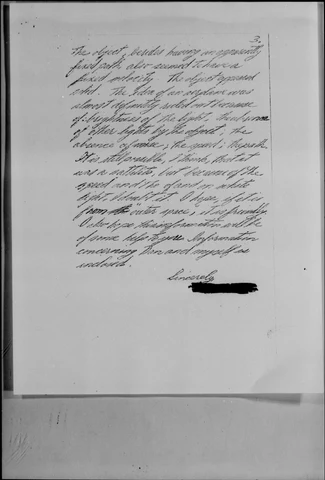 3.
The object, besides having an apparently
fixed path also seemed to have a
fixed velocity. The object appeared
solid. The idea of an airplane was
almost definitely ruled out because
of brightness of the light, the absence
of other lights by the object, the
absence of noise, the speed, the path.
It is still possible, I think, that it
was a satellite, but because of the
speed and the of and on white
light I doubt it. I hope, if it is
from "outer space, it is friendly.
I also hope this information will be
of some help to you. Information
concerning Don and myself is
enclosed.
Sincerely